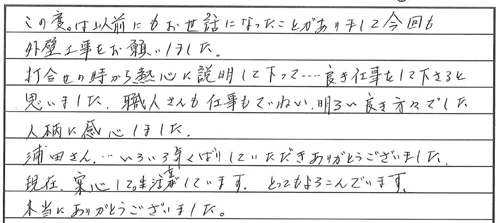 この度は以前にもお世話になったことがありまして今回も
外壁工事をお願いしました。
打合せの時から熱心に説明して下って…良き仕事をして下さると
思いました。職人さんも仕事もていねい、明るい良き方々でした
人柄に感心しました。
浦田さん…いろいろ気くばりしていただきありがとうございました。
現在、安心して生活がしています。とってもよろこんでいます。
本当にありがとうございました。